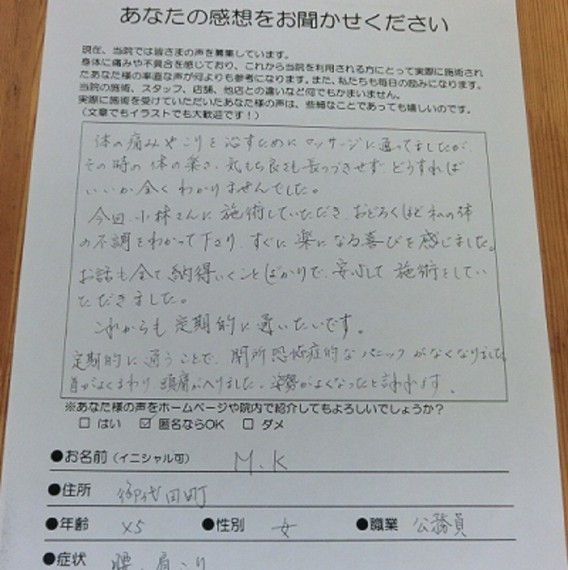 あなたの感想をお聞かせください
現在、当院では皆さまの声を募集しています。
身体に痛みや不具合を感じており、これから当院を利用される方にとって実際に施術され
たあなた様の率直な声が何よりも参考になります。また、私たちも毎日の励みになります。
当院の施術、スタッフ、店舗、他店との違いなど何でもかまいません。
実際に施術を受けていただいたあなた様の声は、些細なことであっても嬉しいのです。
(文章でもイラストでも大歓迎です!)
体の痛みやこりを治すためにマッサージに通ってましたが
その時の体の楽さ、気もち良さも長つづきせず、どうすれば
いいか全くわかりませんでした。
今回、小林さんに施術していただき、おどろくほど私の体
の不調をわかって下さり、すぐに楽になる喜びを感じました。
お話も全て納得いくことばかりで、安心して施術をしてい
ただきました。
これからも定期的に通いたいです。
定期的に通うことで、閉所恐怖症的なパニックがなくなりました
首がよくまわり頭痛がへりました。姿勢がよくなったと言われます。
※あなた様の声をホームページや院内で紹介してもよろしいでしょうか?
□ はい ☑ 匿名ならOK □ ダメ
●お名前(イニシャル可) M.K
●住所 御代田町
●年齢 ×5 ●性別 女 ●職業 公務員
●症状 腰、肩こり